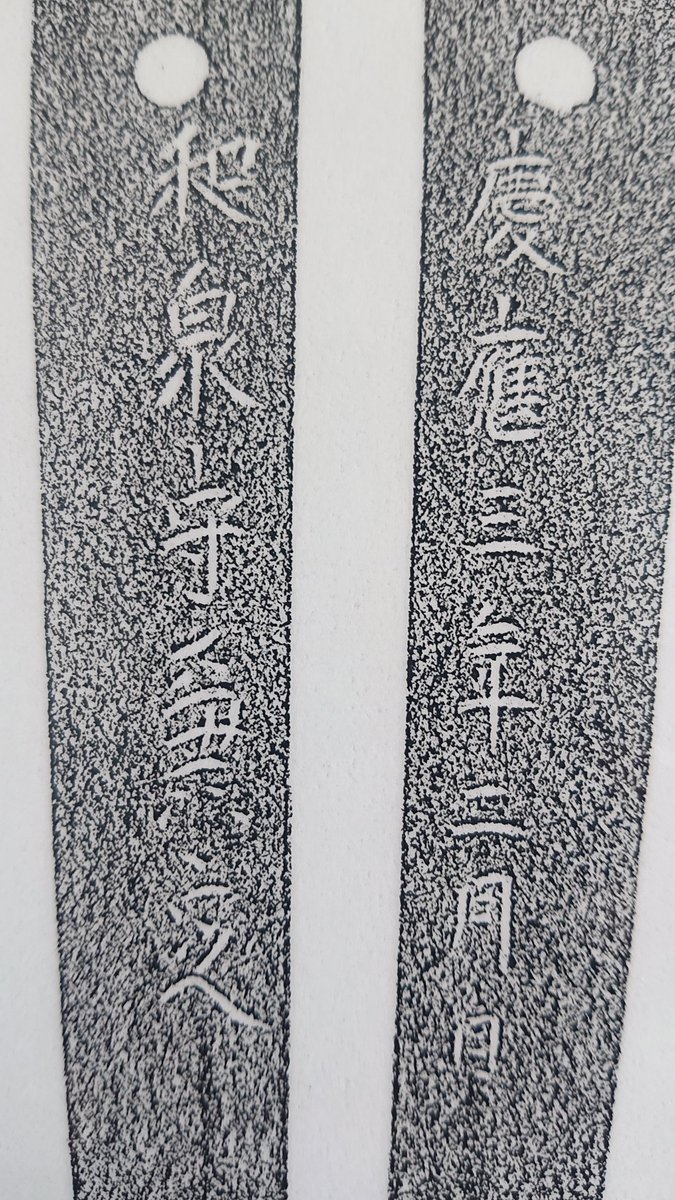 慶應三年三月日
和泉守兼定